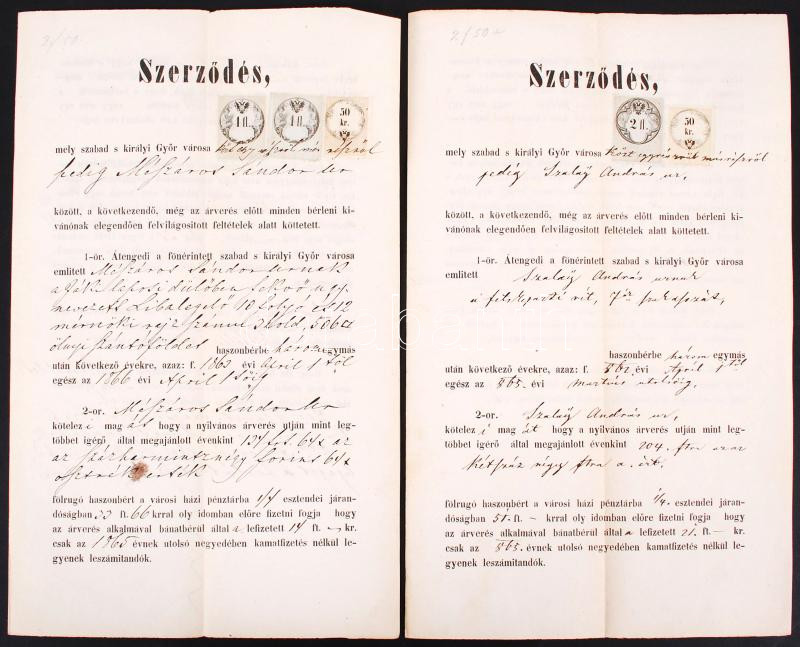 3/50
Szerződés,
1 fl.
1 fl.
50 kr.
mely szabad s királyi Győr városa
pedig Mészáros Sándor úr
között, a következendő, még az árverés előtt minden bérleni ki-
vánónak elegendően felvilágositott feltételek alatt köttetett.
1-ör. Átengedi a fönérintett szabad s királyi Győr városa
emlitett Mészáros Sándor urnak
dülőben úgy
nevezett 10 folyó és 12
mérnöki rajz szám 3 hold, 506
ölnyi szántóföldet haszonbérbe három egymás
után következő évekre, azaz: f. 1863 évi April 1 től
egész az 1866 évi April 1 sőig
2-or. Mészáros Sándor úr
kötelezi magát hogy a nyilvános árverés utján mint leg-
többet igérő által megajánlott évenkint 134 fts. 64 x az
az százharmincznégy forint 64 x
osztrák érték
fölrugó haszonbért a városi házi pénztárba 1/4 esztendei járan-
dóságban 33 ft. 66 krral oly idomban előre fizetni fogja hogy
az árverés alkalmával bánatbérül által a lefizetett 14 ft. — kr.
csak az 1865 évnek utolsó negyedében kamatfizetés nélkül le-
gyenek leszámitandók.
2/50
Szerződés,
2 fl.
50 kr.
mely szabad s királyi Győr városa közt egyrészről másrészről
pedig Szalay András ur,
között, a következendő, még az árverés előtt minden bérleni ki-
vánónak elegendően felvilágositott feltételek alatt köttetett.
1-ör. Átengedi a fönérintett szabad s királyi Győr városa
emlitett Szalay András urnak
a rét, 7ik szakaszát,
haszonbérbe három egymás
után következő évekre, azaz: f. 862 évi April 1től
egész az 865. évi martius utolsóig,
2-or. Szalay András ur,
kötelezi magát hogy a nyilvános árverés utján mint leg-
többet igérő által megajánlott évenkint 204. ftra azaz
kétszáz négy ftra a. ért.
fölrugó haszonbért a városi házi pénztárba 1/4. esztendei járan-
dóságban 51. ft. — krral oly idomban előre fizetni fogja hogy
az árverés alkalmával bánatbérül által a lefizetett 21. ft. — kr.
csak az 865. évnek utolsó negyedében kamatfizetés nélkül le-
gyenek leszámitandók.